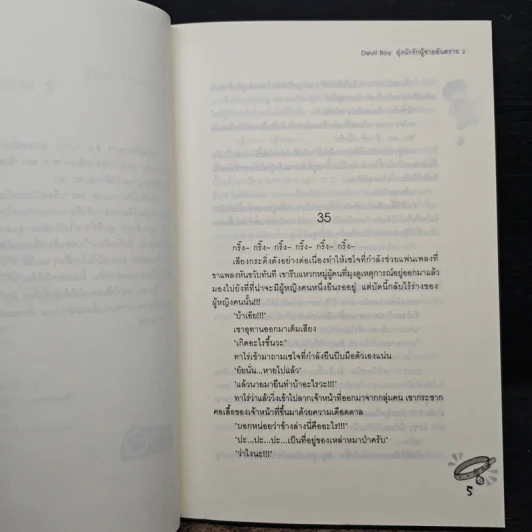 Devil Boy ยุ่งนักรักผู้ชายอันตราย 2
35
กริ๊ง~ กริ๊ง~ กริ๊ง~ กริ๊ง~ กริ๊ง~ กริ๊ง~
เสียงกระดิ่งดังอย่างต่อเนื่องทำให้เซโจที่กำลังช่วยแฟนเพลงที่
ขาแพลงหันขวับทันที เขารีบแหวกหมู่ผู้คนที่มุงดูเหตุการณ์อยู่ออกมาแล้ว
มองไปยังที่ที่น่าจะมีผู้หญิงคนหนึ่งยืนรออยู่ แต่บัดนี้กลับไร้ร่างของ
ผู้หญิงคนนั้น!!!
'บ้าเอ๊ย!!!'
เขาอุทานออกมาเต็มเสียง
'เกิดอะไรขึ้นวะ'
ทาโร่เข้ามาถามเซโจที่กำลังยืนบีบมือตัวเองแน่น
'ยัยนั่น...หายไปแล้ว'
'แล้วนายมายืนทำบ้าอะไรวะ!!!'
ทาโร่ว่าแล้ววิ่งเข้าไปลากเจ้าหน้าที่ออกมาจากกลุ่มคน เขากระชาก
คอเสื้อของเจ้าหน้าที่ขึ้นมาด้วยความเดือดดาล
'บอกหน่อยว่าข้างล่างนี่คืออะไร!!!'
'ปะ...ปะ...ปะ...เป็นที่อยู่ของเหล่าหมาป่าครับ'
'ว่าไงนะ!!!'
5